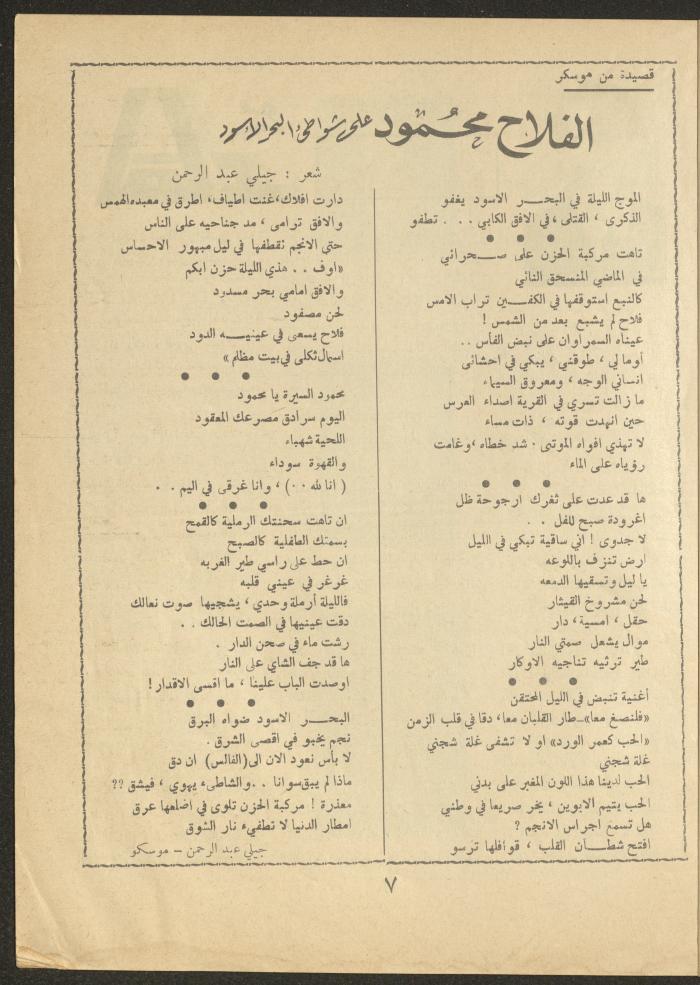 قصيدة من موسكو
الفلاح محمود على شواطئ البحر الاسود
شعر : جيلي عبد الرحمن
الموج الليلة في البحر الاسود يغفو
الذكرى ، القتلى ، في الافق الكابي . . . تطفو
تاهت مركبة الحزن على صحرائي
في الماضي المنسحق النائي
كالنبع استوقفها في الكفين تراب الامس
فلاح لم يشبع بعد من الشمس !
عيناه السمراوان على نبض الفأس ..
أوما لي ، طوقني ، يبكي في احشائي
انساني الوجه ، ومعروق السيماء
ما زالت تسري في القرية اصداء العرس
حين انهدت قوته ، ذات مساء
لا تهذي افواه الموتى . شد خطاه ، وغامت
رؤياه على الماء
ها قد عدت على ثغرك ارجوحة ظل
اغرودة صبح للفل . .
لا جدوى ! اني ساقية تبكي في الليل
ارض تنزف باللوعه
يا ليل وتسقيها الدمعه
لحن مشروخ القيثار
حقل ، امسية ، دار
موال يشعل صمتي النار
طير ترثيه تناجيه الاوكار
أغنية تنبض في الليل المحتقن
«فلنصغ معا»–طار القلبان معا، دقا في قلب الزمن
«الحب كعمر الورد» او لا تشفى غلة شجني
غلة شجني
الحب لدينا هذا اللون المغبر على بدني
الحب يتيم الابوين ، يخر صريعا في وطني
هل تسمع اجراس الانجم ؟
افتح شطان القلب ، قوافلها ترسو
دارت افلاك، غنت اطياف، اطرق في معبده الهمس
والافق ترامى ، مد جناحيه على الناس
حتى الانجم نقطفها في ليل مبهور الاحساس
«اوف . . هذي الليلة حزن ابكم
والافق امامي بحر مسدود
لحن مصفود
فلاح يسعى في عينيه الدود
اسمال ثكلى في بيت مظلم»
محمود السيرة يا محمود
اليوم سرادق مصرعك المعقود
اللحية شهباء
والقهوة سوداء
( انا لله ٠٠ ) ، وانا غرقى في اليم . .
ان تاهت سحنتك الرملية كالقمح
بسمتك الطفلية كالصبح
ان حط على راسي طير الغربه
غرغر في عيني قلبه
فالليلة أرملة وحدي ، يشجيها صوت نعالك
دقت عينيها في الصمت الحالك . .
رشت ماء في صحن الدار .
ها قد جف الشاي على النار
اوصدت الباب علينا ، ما اقسى الاقدار !
البحر الاسود ضواه البرق
نجم يخبو في اقصى الشرق .
لا بأس نعود الان الى (الفالس) ان دق
ماذا لم يبق سوانا . . والشاطىء يهوي ، فيشق ??
معذرة ! مركبة الحزن تلوى في اضلعها عرق
امطار الدنيا لا تطفيء نار الشوق
جيلي عبد الرحمن – موسكو
٧